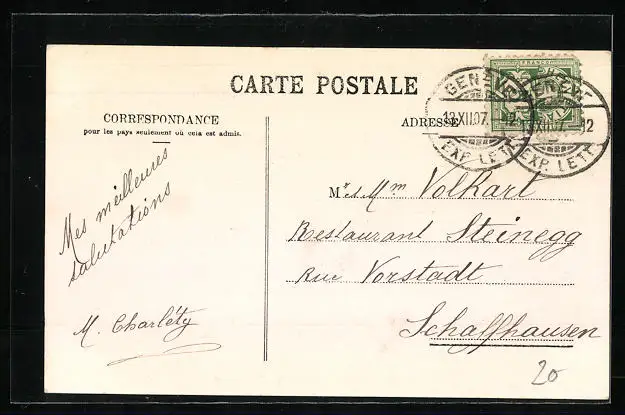 CARTE POSTALE
CORRESPONDANCE
pour les pays seulement où cela est admis.
ADRESSE
FRANCO
GENÈVE
13.XII.07. 12
EXP. LETT.
GENÈVE
XII.07. 12
EXP. LETT.
Mr et Mm Volkart
Restaurant Steinegg
Rue Vorstadt
Schaffhausen
Mes meilleures
salutations
M. Charléty
20